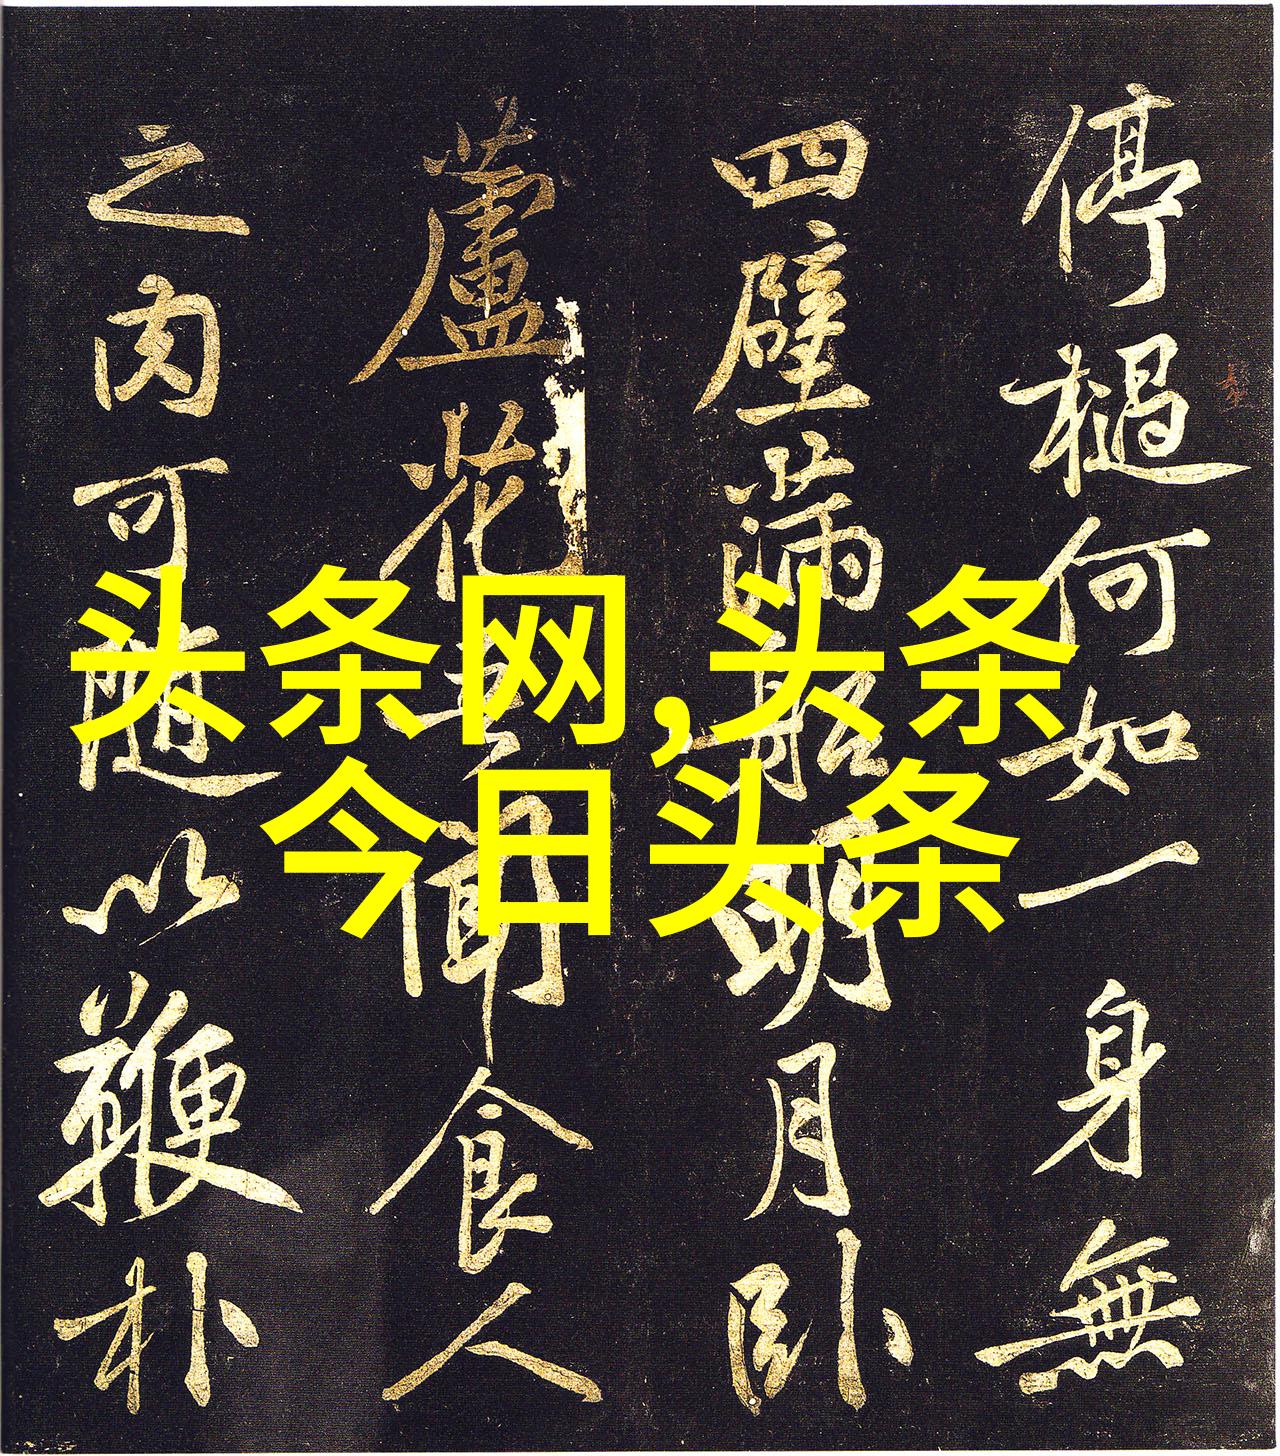 停檛何如一身無
四壁滿船明月卧
蘆花 聞食人
之肉可隨以鞭朴
头条网,头条
今日头条